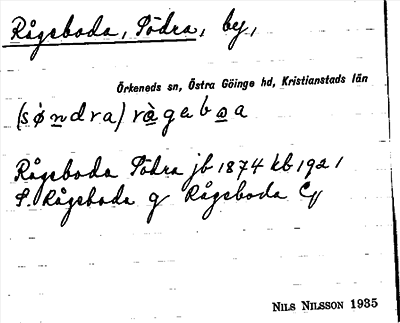 Rågeboda, Södra, by,
Örkeneds sn, Östra Göinge hd, Kristianstads län
(søndra) ràgeboa
Rågeboda Södra jb 1874 kb 1921
S. Rågeboda g Rågeboda
NILS NILSSON 1935